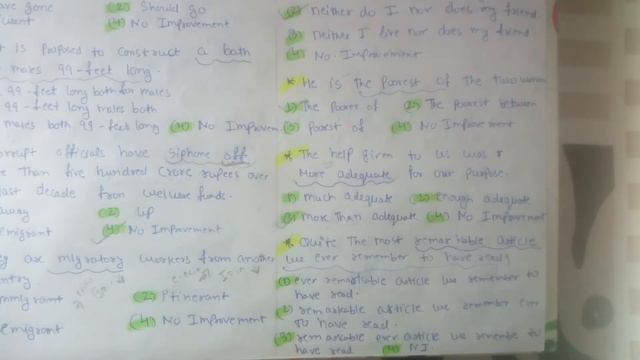 ave gone (2) Should go
want (4) No Improvement
t is proposed to construct a bath
males 99-feet long.
99-feet long both for males
99-feet long males both
males both 99-feet long (4) No Improvem
orrupt officials have siphone off
e than five hundred crore rupees over
last decade from welware funds.
away (2) up
emigrant (4) No Improvement
y are migratory workers from another
ntry
mmigrant (2) Ptinerant
emigrant (4) No Improvement
(2) neither do I nor does my friend.
(3) neither I live nor does my friend.
(4) No. Improvement
* He is the poorest of the two
(1) The poorer of (2) The poorest between
(3) poorest of (4) No Improvement
* The help given to us was
more adequate for our purpose.
(1) much adequate (2) enough adequate
(3) more than adequate (4) No Improvement
* Quite the most remarkable article
we ever remember to have read.
(1) ever remarkable article we remember to
have read.
(2) remarkable article we remember ever
to have read.
(3) remarkable ever article we remember to
have read (4) N.I.